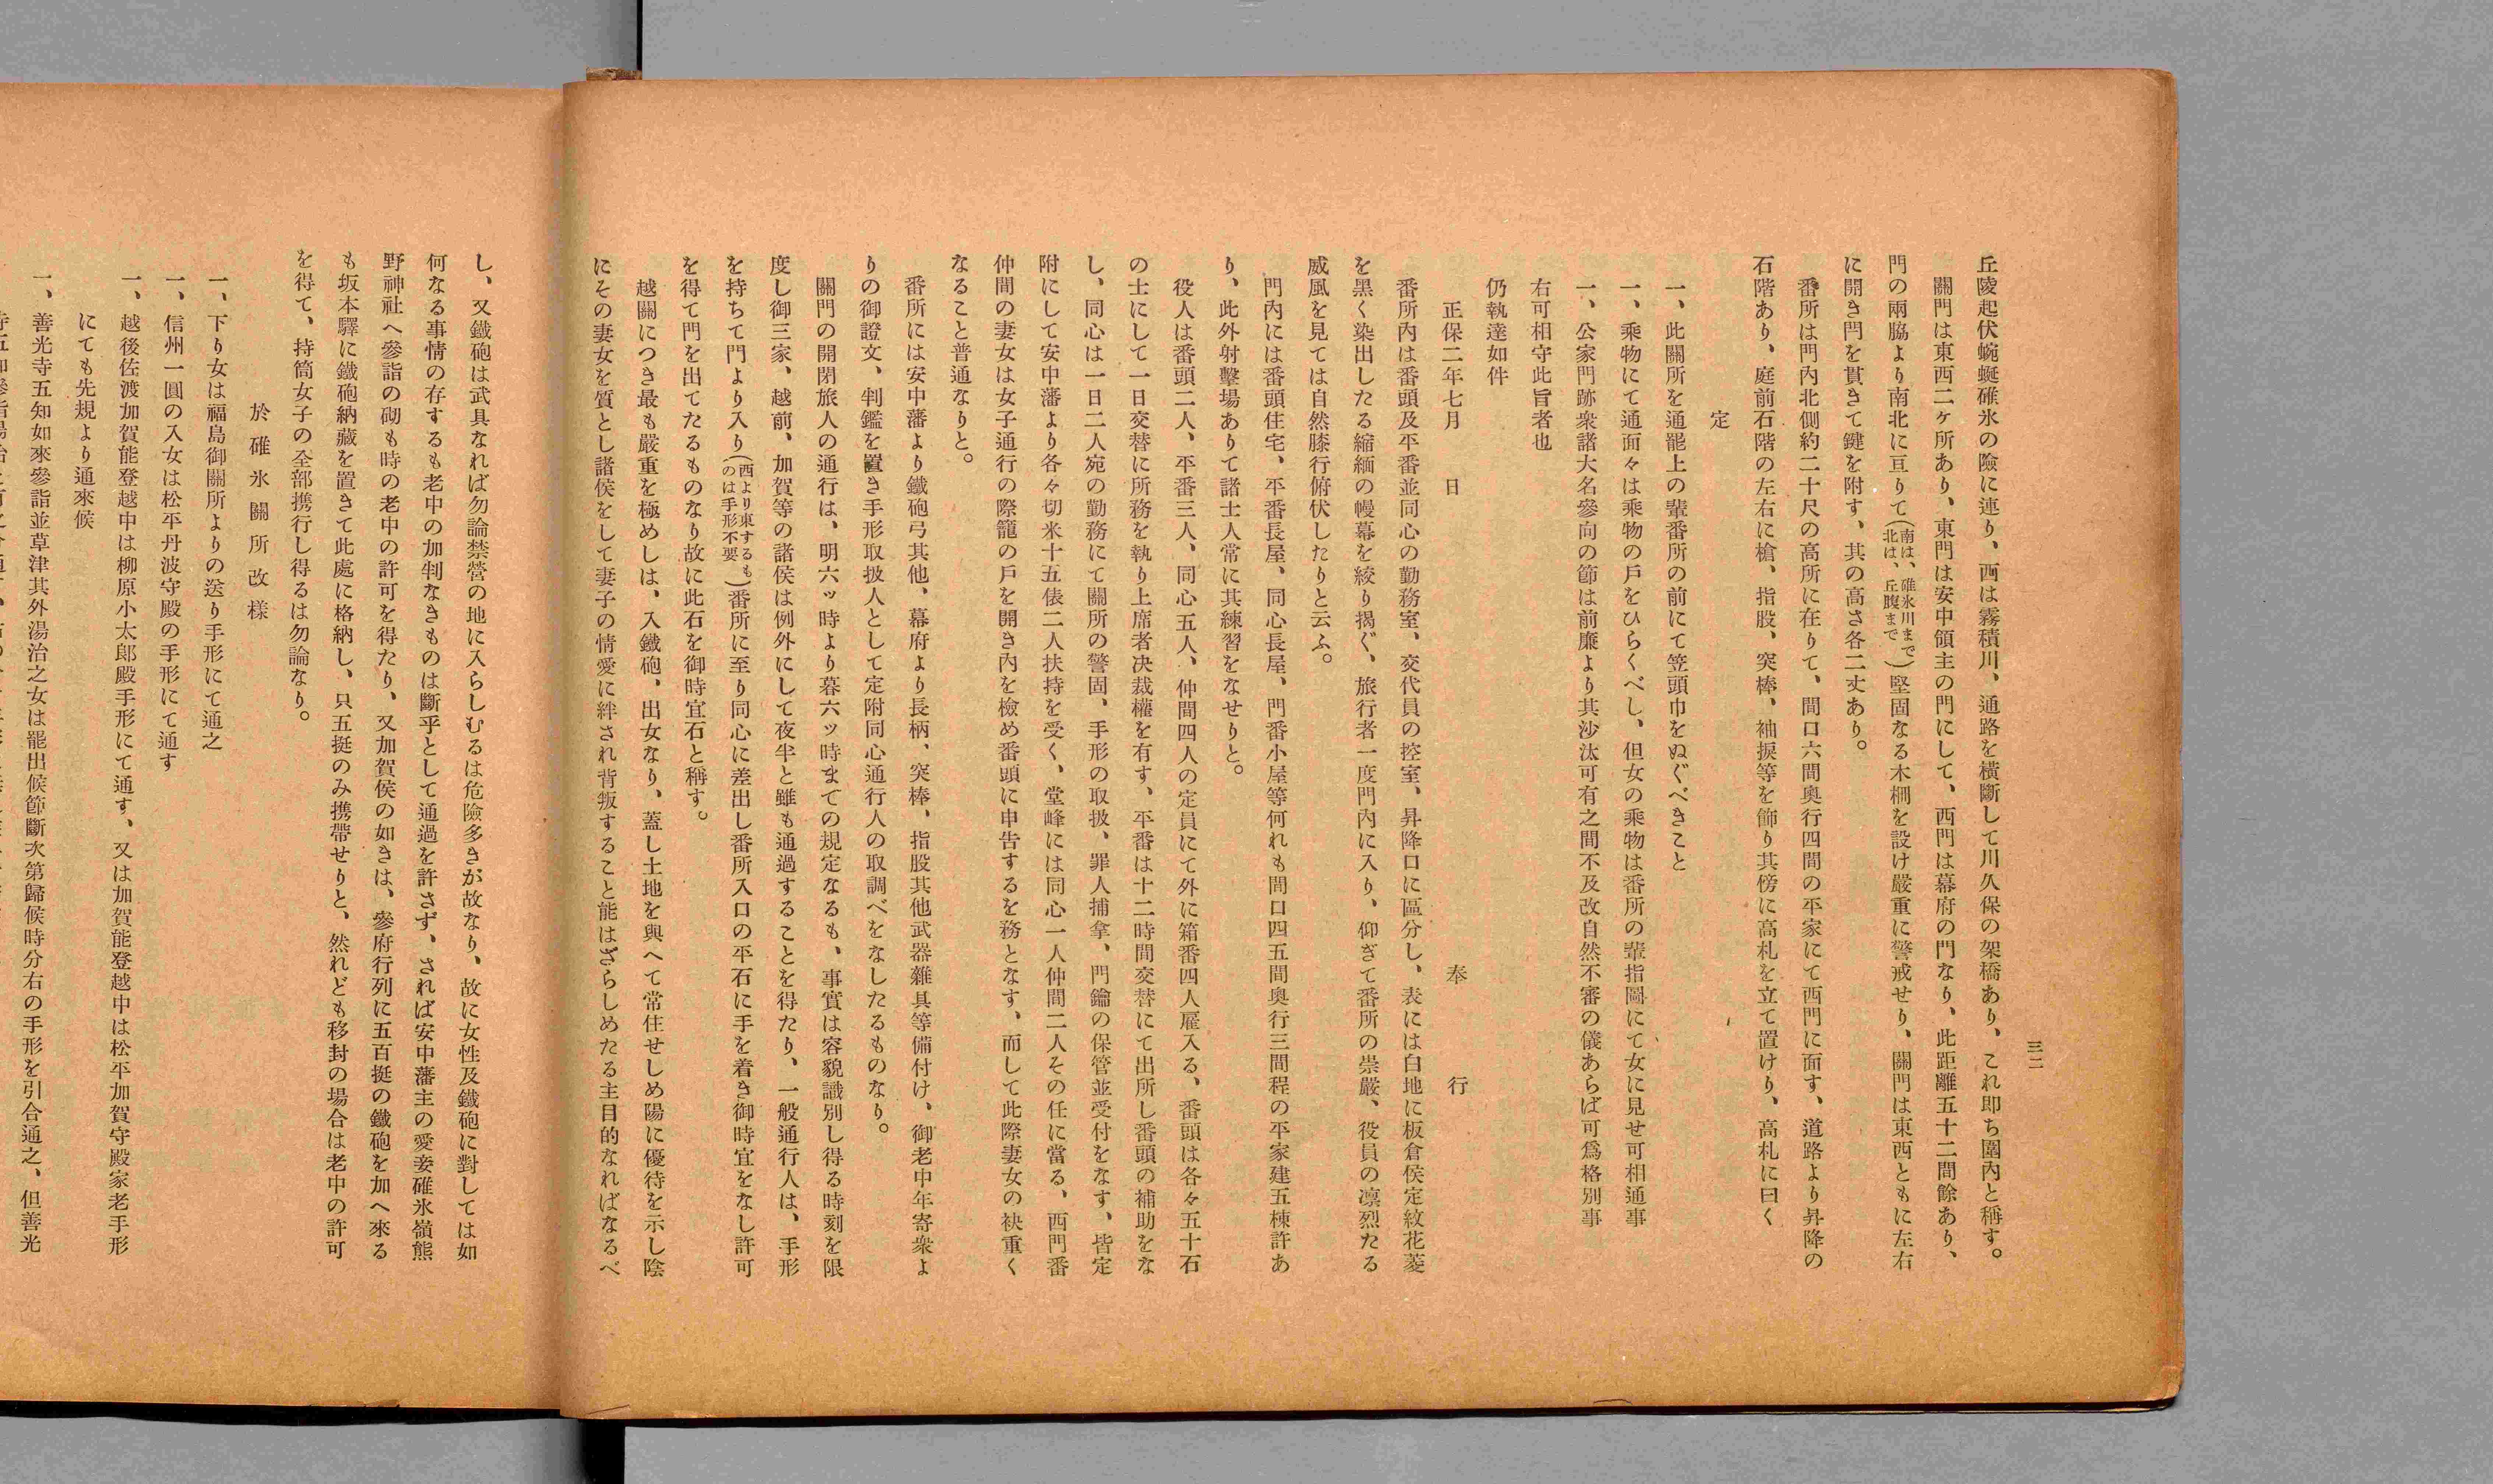 三二
丘陵起伏蜿蜒碓氷の險に連り、西は霧積川、通路を横斷して川久保の架橋あり、これ即ち圍內と稱す。
關門は東西二ヶ所あり、東門は安中領主の門にして、西門は幕府の門なり、此距離五十二間餘あり、
門の兩脇より南北に亘りて(南は、碓氷川まで北は、丘腹まで)堅固なる木柵を設け嚴重に警戒せり、關門は東西ともに左右
に開き閂を貫きて鍵を附す、其の高さ各二丈あり。
番所は門內北側約二十尺の高所に在りて、間口六間奥行四間の平家にて西門に面す、道路より昇降の
石階あり、庭前石階の左右に槍、指股、突棒、袖捩等を飾り其傍に高札を立て置けり、高札に曰く
定
一、此關所を通罷上の輩番所の前にて笠頭巾をぬぐべきこと
一、乘物にて通面々は乘物の戶をひらくべし、但女の乘物は番所の輩指圖にて女に見せ可相通事
一、公家門跡衆諸大名參向の節は前廉より其沙汰可有之間不及改自然不審の儀あらば可爲格別事
右可相守此旨者也
仍執達如件
正保二年七月　日　奉行
番所內は番頭及平番並同心の勤務室、交代員の控室、昇降口に區分し、表には白地に板倉侯定紋花菱
を黑く染出したる縮緬の幔幕を絞り揭ぐ、旅行者一度門內に入り、仰ぎて番所の崇嚴、役員の凛烈たる
威風を見ては自然膝行俯伏したりと云ふ。
門內には番頭住宅、平番長屋、同心長屋、門番小屋等何れも間口四五間奥行三間程の平家建五棟許あ
り、此外射擊場ありて諸士人常に其練習をなせりと。
役人は番頭二人、平番三人、同心五人、仲間四人の定員にて外に箱番四人雇入る、番頭は各々五十石
の士にして一日交替に所務を執り上席者決裁權を有す、平番は十二時間交替にて出所し番頭の補助をな
し、同心は一日二人宛の勤務にて關所の警固、手形の取扱、罪人捕拿、門鑰の保管並受付をなす、皆定
附にして安中藩より各々切米十五俵二人扶持を受く、堂峰には同心一人仲間二人その任に當る、西門番
仲間の妻女は女子通行の際籠の戶を開き內を檢め番頭に申告するを務となす、而して此際妻女の袂重く
なること普通なりと。
番所には安中藩より鐵砲弓其他、幕府より長柄、突棒、指股其他武器雜具等備付け、御老中年寄衆よ
りの御證文、判鑑を置き手形取扱人として定附同心通行人の取調べをなしたるものなり。
關門の開閉旅人の通行は、明六ッ時より暮六ッ時までの規定なるも、事實は容貌識別し得る時刻を限
度し御三家、越前、加賀等の諸侯は例外にして夜半と雖も通過することを得たり、一般通行人は、手形
を持ちて門より入り(西より東するものは手形不要)番所に至り同心に差出し番所入口の平石に手を着き御時宜をなし許可
を得て門を出てたるものなり故に此石を御時宜石と稱す。
越關につき最も嚴重を極めしは、入鐵砲、出女なり、蓋し土地を與へて常住せしめ陽に優待を示し陰
にその妻女を質とし諸侯をして妻子の情愛に絆され背叛すること能はざらしめたる主目的なればなるべ
し、又鐵砲は武具なれば勿論禁營の地に入らしむるは危險多きが故なり、故に女性及鐵砲に對しては如
何なる事情の存するも老中の加判なきものは斷乎として通過を許さず、されば安中藩主の愛妾碓氷嶺熊
野神社へ參詣の砌も時の老中の許可を得たり、又加賀侯の如きは、參府行列に五百挺の鐵砲を加へ來る
も坂本驛に鐵砲納藏を置きて此處に格納し、只五挺のみ携帶せりと、然れども移封の場合は老中の許可
を得て、持筒女子の全部携行し得るは勿論なり。
於碓氷關所改樣
一、下り女は福島御關所よりの送り手形にて通之
一、信州一圓の入女は松平丹波守殿の手形にて通す
一、越後佐渡加賀能登越中は柳原小太郎殿手形にて通す、又は加賀能登越中は松平加賀守殿家老手形
にても先規より通來候
一、善光寺五知如來參詣並草津其外湯治之女は罷出候節斷次第歸候時分右の手形を引合通之、但善光